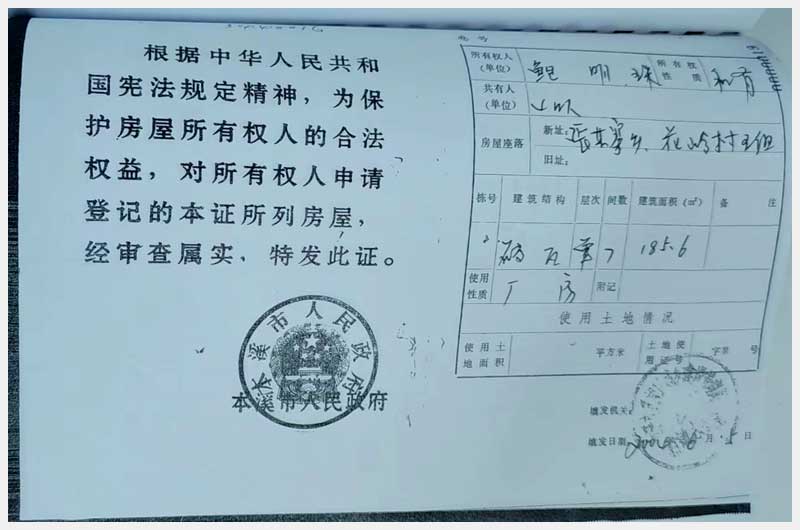 根据中华人民共和
国宪法规定精神，为保
护房屋所有权人的合法
权益，对所有权人申请
登记的本证所列房屋，
经审查属实，特发此证。
本溪市人民政府
本溪市人民政府
所有权人
(单位)
鲍明珠
所有权
性质
私有
共有人
(单位)
房屋座落
新址:
张其寨乡 花岭村五组
旧址:
栋号 建筑结构 层次 间数 建筑面积 (㎡) 备 注
砖瓦 单 7 185.6
使用
性质
厂房
附记
使用土地情况
使用土
地面积
平方米
土地使
用证号
字第 号
填发机关:
填发日期: 6月5日